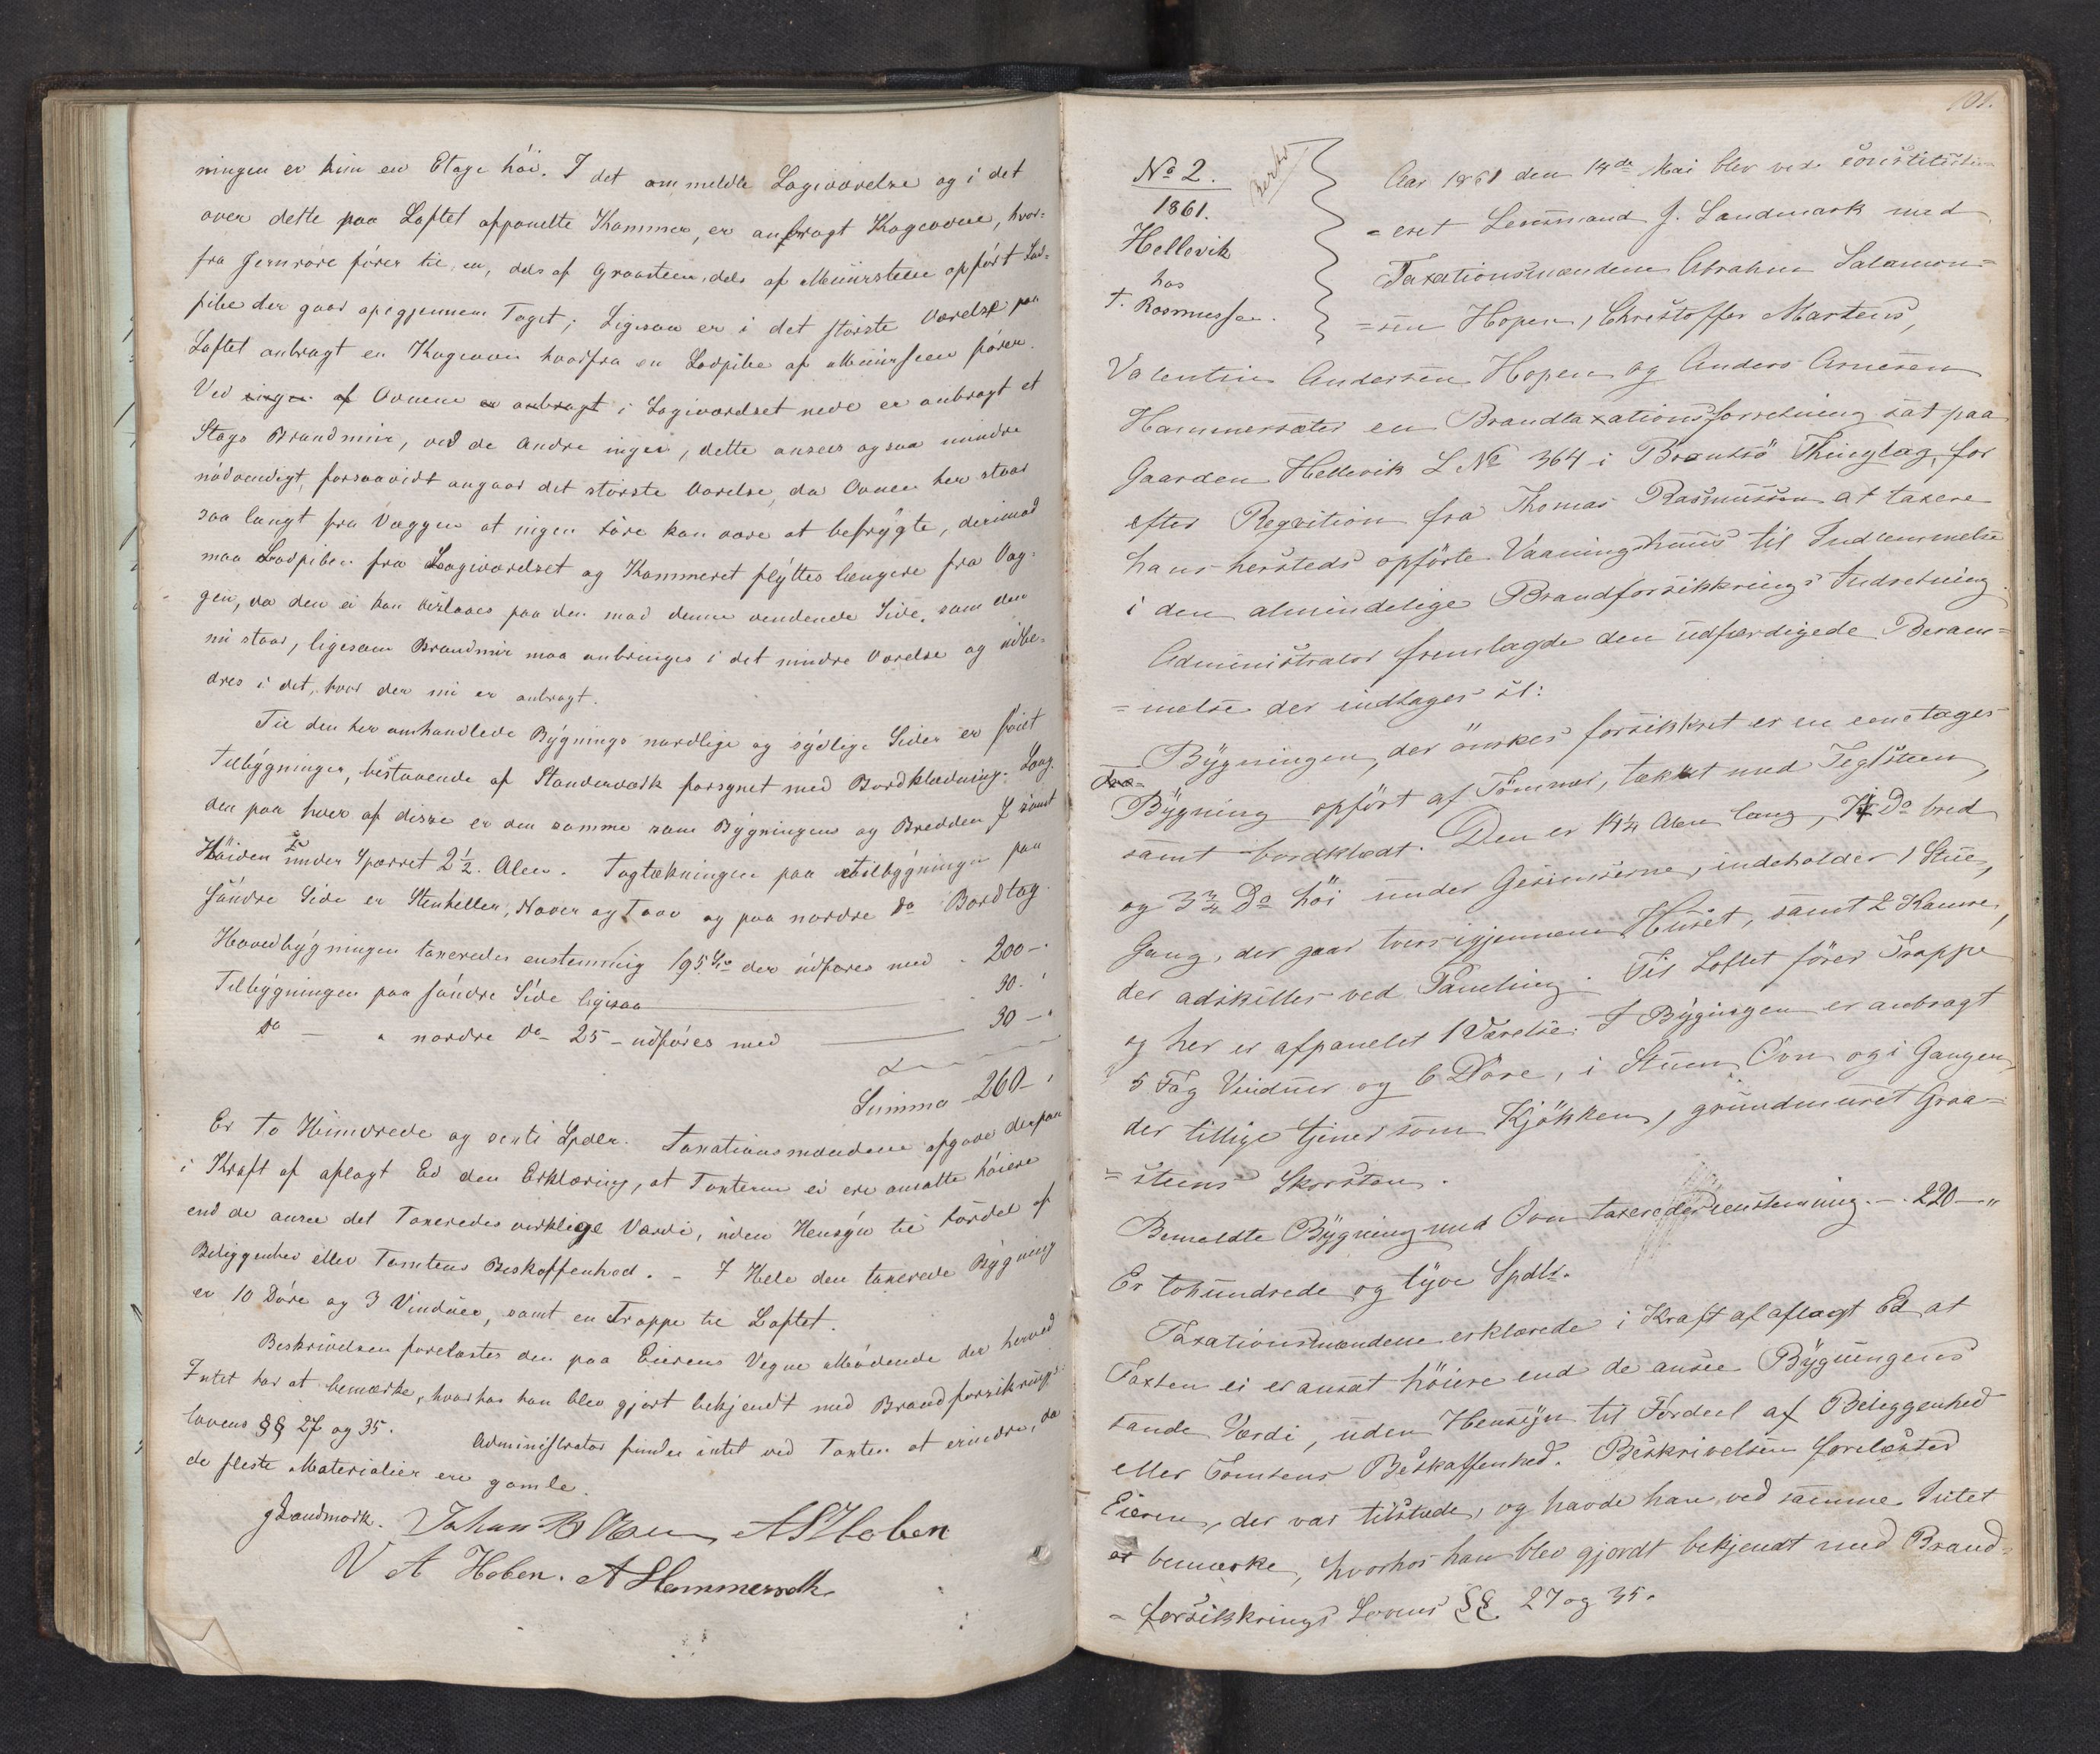 ningen er kun en Etage höi. I det ommeldte Logiværelse og i det
over dette paa Loftet afpanelte Kammer, er anbragt Kogeovne, hvor-
fra Jernröre förer til en, dels af Graasteen, dels af Muursteen opfört Lod-
pibe der gaar opigjennem Taget; Ligesaa er i det störste Værelse paa
Loftet anbragt en Kogeovn hvorfra en Lodpibe af Muursteen förer.
Ved ingen af Ovnene er anbragt i Logiværelset nede er anbragt et
Slags Brandmur, ved de andre ingen, dette ansees ogsaa mindre
nödvendigt, forsaavidt angaar det störste Værelse, da Ovnen her staar
saa langt fra Væggen at ingen Fare kan være at befrygte, derimod
maa Lodpiben fra Logiværelset og Kammeret flyttes længere fra Væg-
gen, da den ei kan kistaaes paa den mod denne vendende Side, som den
nu staar, ligesom Brandmur maa anbringes i det mindre Værelse og udbe-
dres i det, hvor den nu er anbragt.
Til den her omhandlede Bygnings nordlige og sydlige Sider er föiet
Tilbygninger, bestaaende af Standerværk forsynet med Bordklædning. Læng-
den paa hver af disse er den samme som Bygningens og Bredden samt
Höiden under Sparret 2½ Alen. Tagtækningen paa Tilbygningen paa
söndre Side er Stenheller, Næver og Torv og paa nordre Do Bordtag.
Hovedbygningen taxeredes enstemmig 195 der udföres med - 200 -"
Tilbygningen paa söndre Side ligesaa - 30 "
Do - " nordre Do - 25 - udföres med - 30 - "
Summa - 260 - "
Er to Hundrede og sexti Spdlr. Taxationsmændene afgave derpaa
i Kraft af aflagt Ed den Erklæring, at Taxterne ei ere ansatte höiere
end de ansee det Taxeredes virkelige Værdi, uden Hensyn til Fordel af
Beliggenhed eller Tomtens Beskaffenhed. - I Hele den taxerede Bygning
er 10 Döre og 3 Vinduer, samt en Trappe til Loftet.
Beskrivelsen forelæstes den paa Eierens Vegne Mödende der herved
Intet har at bemærke, hvorhos han blev gjort bekjendt med Brandforsikrings-
lovens §§ 27 og 35. Administrator finder intet ved Taxten at erindre, da
de fleste Materialier ere gamle.
J Landmark. Johan B Olsen A S Hoben
V A Hoben. A Hammersæth
101.
No 2.
1861.
Hellevik
hos
T. Rasmussen.
Aar 1861 den 14de Mai blev ved constitu-
=eret Lensmand J. Landmark med
Taxationsmændene Abraham Salamon=
=sen Hopen, Christoffer Martens,
Valentin Andersen Hopen og Anders Arnesen
Hammersæter en Brandtaxationsforretning sat paa
Gaarden Hellevik L No 364 i Brandsö Thinglag, for
efter Reqvition fra Thomas Rasmussen at taxere
hans hersteds opförte Vaaningshuus til Indlemmelse
i den almindelige Brandforsikkrings Indretning.
Administrator fremlagde den udfærdigede Beram=
=melse der indtages sl:
Bygningen, der önskes forsikkret er en eenetages
Bygning opfört af Tömmer, tækket med Teglsteen,
samt bordklædt. Den er 14¼ Alen lang, Do bred
og 3¾ Do höi under Gesimserne, indeholder 1 Stue,
Gang, der gaar tversigjennem Huset, samt 2 Kamre,
der adskilles ved Paneling. Til Loftet förer Trappe
og her er afpanelet 1 Værelse. I Bygningen er anbragt
5 Fag Vinduer og 6 Döre, i Stuen Ovn og i Gangen,
der tillige tjener som Kjökken, grundmuret Graa=
=steens Skorsten.
Bemeldte Bygning med Ovn taxeredes eenstemmig - 220 - "
Er tohundrede og tyve Spdlr.
Taxationsmændene erklærede i Kraft af aflagt Ed at
Taxten ei er ansat höiere end de ansee Bygningens
sande Værdi, uden Hensyn til Fordeel af Beliggenhed
eller Tomtens Beskaffenhed. Beskrivelsen forelæstes
Eieren, der var tilstede, og havde han ved samme Intet
at bemærke, hvorhos han blev gjordt bekjendt med Brand=
=forsikkrings Lovens §§ 27 og 35.